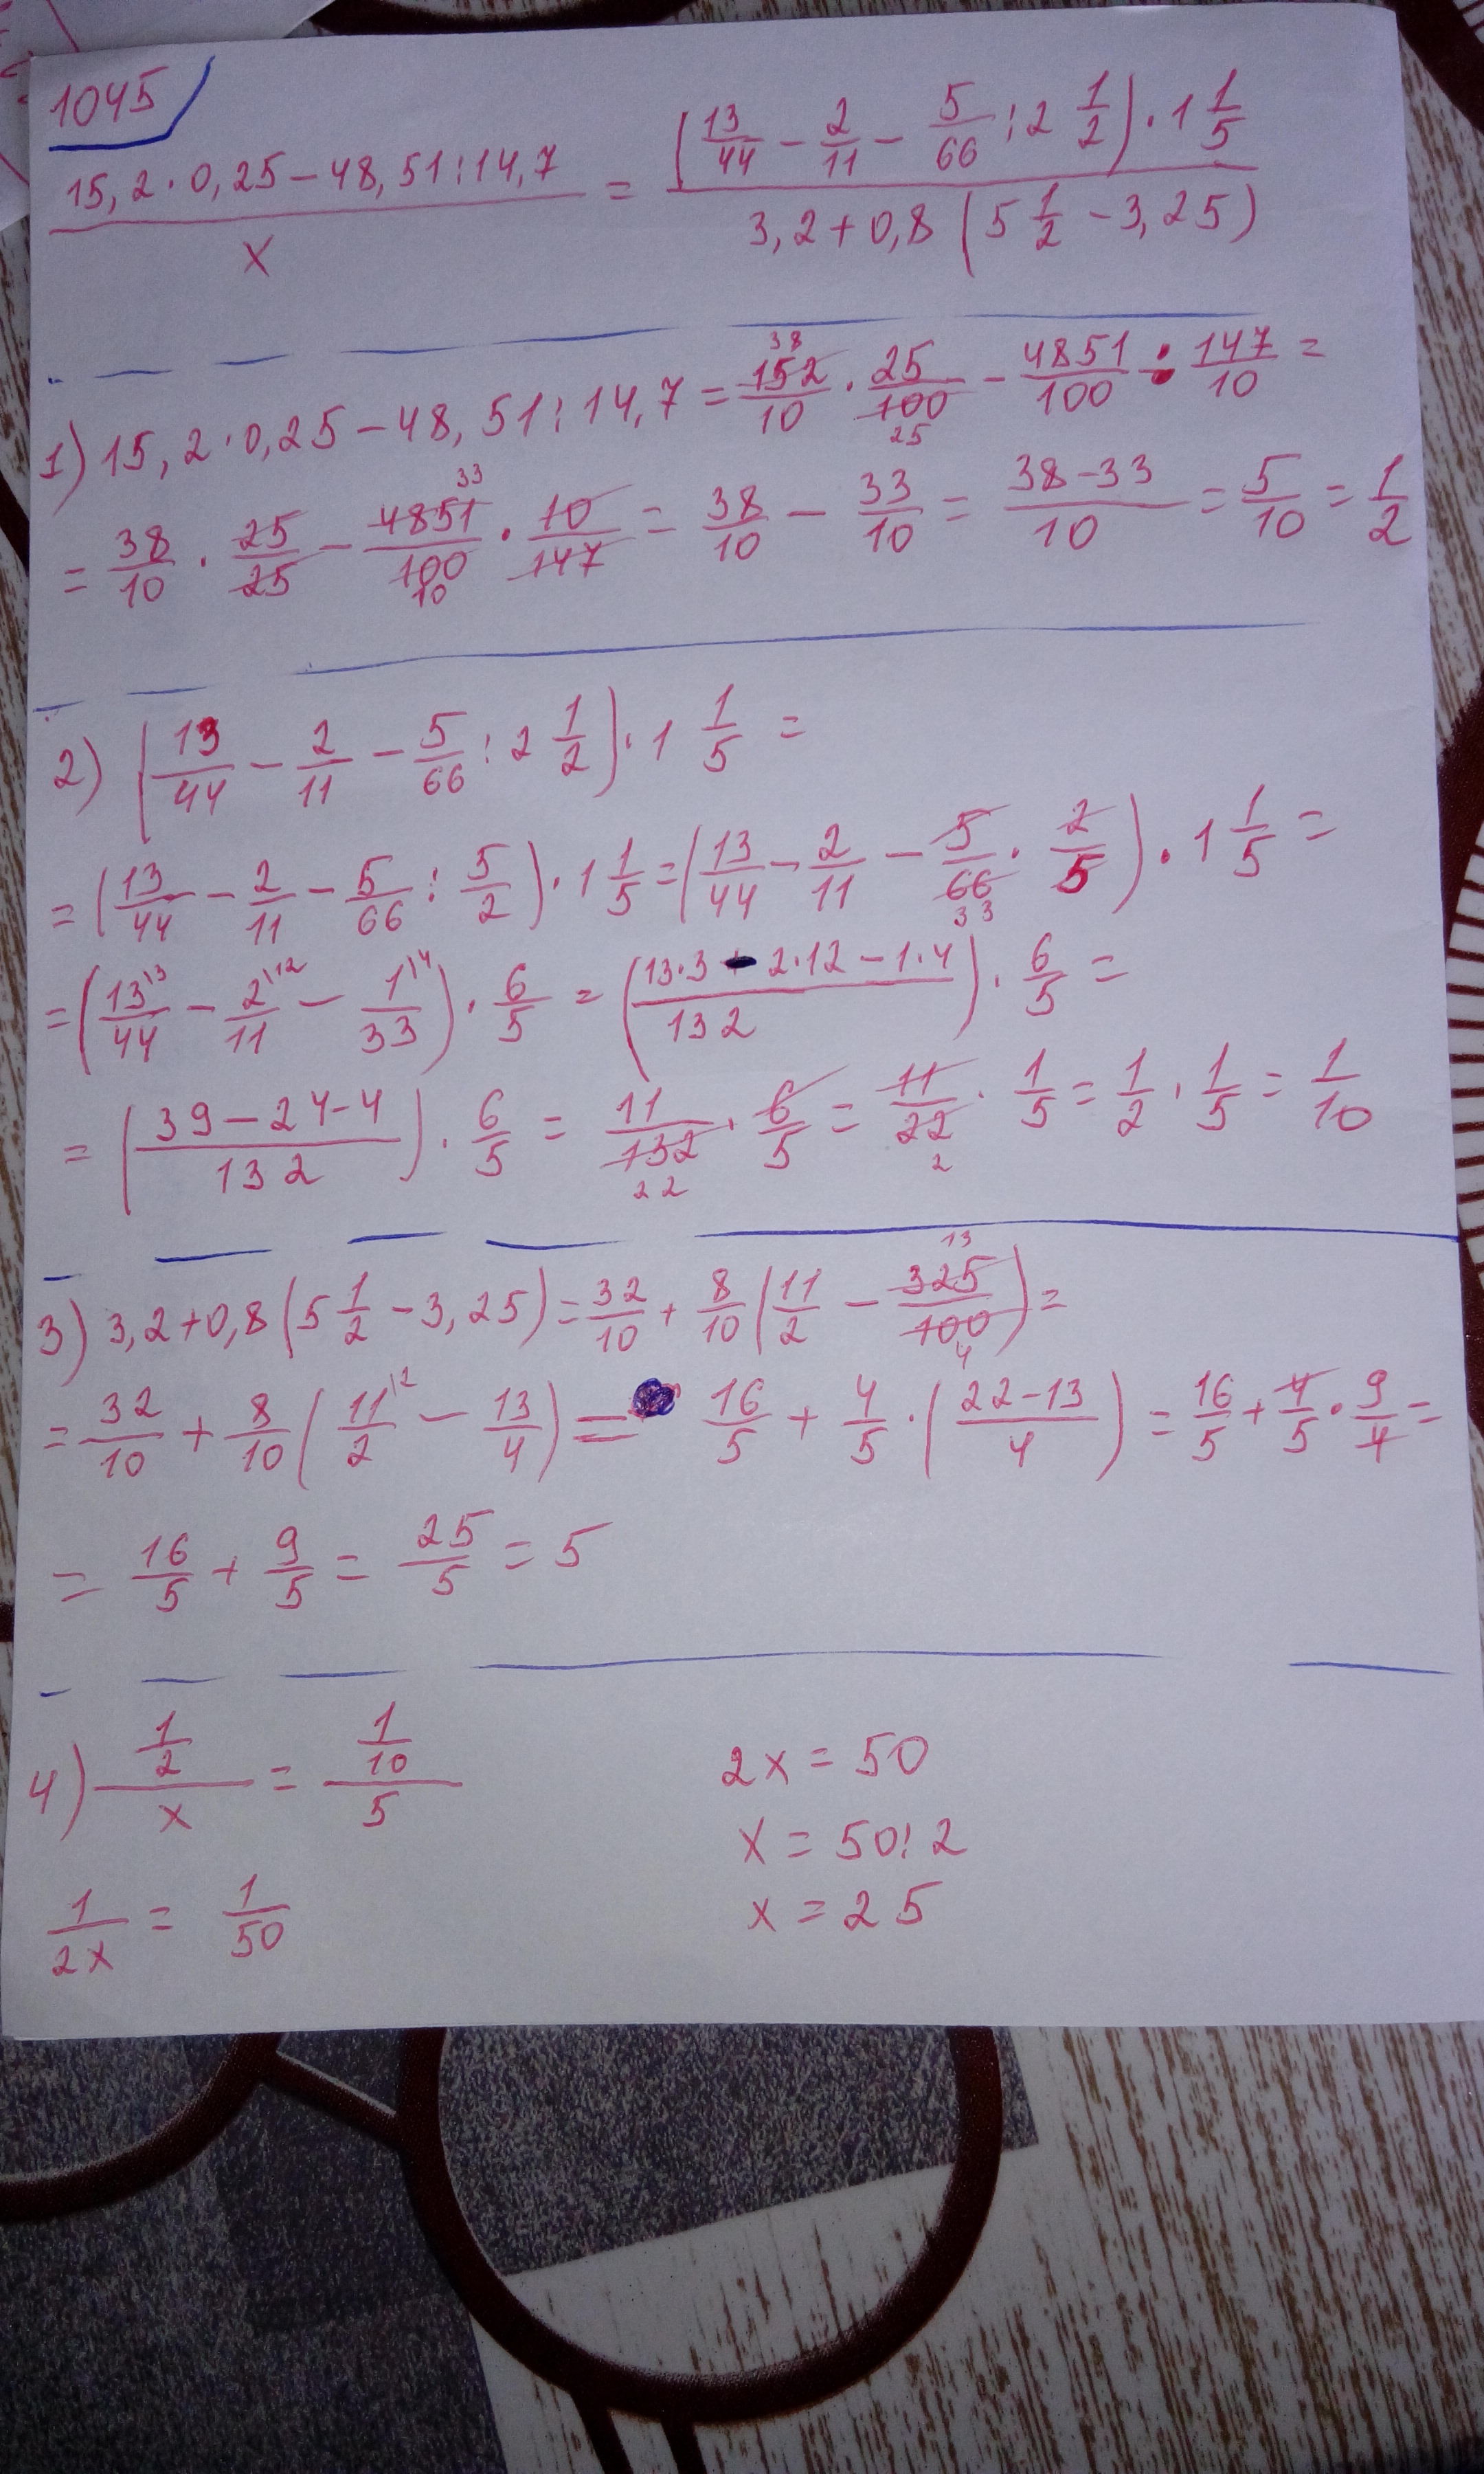 1045
(15,2·0,25-48,51:14,7)/x = ((13/44 - 2/11 - 5/66 : 2 1/2)·1 1/5)/(3,2+0,8(5 1/2 - 3,25))
1) 15,2·0,25-48,51:14,7 = 152/10 · 25/100 - 4851/100 : 147/10 =
= 38/10 · 25/25 - 4851/100 · 10/147 = 38/10 - 33/10 = (38-33)/10 = 5/10 = 1/2
2) (13/44 - 2/11 - 5/66 : 2 1/2)·1 1/5 =
= (13/44 - 2/11 - 5/66 : 5/2)·1 1/5 = (13/44 - 2/11 - 5/66 · 2/5)·1 1/5 =
= (13\3/44 - 2\12/11 - 1\4/33)·6/5 = ((13·3 - 2·12 - 1·4)/132)·6/5 =
= ((39-24-4)/132)·6/5 = 11/132 · 6/5 = 11/22 · 1/5 = 1/2 · 1/5 = 1/10
3) 3,2+0,8(5 1/2 - 3,25) = 32/10 + 8/10(11/2 - 325/100) =
= 32/10 + 8/10(11\2/2 - 13/4) = 16/5 + 4/5·((22-13)/4) = 16/5 + 4/5 · 9/4 =
= 16/5 + 9/5 = 25/5 = 5
4) (1/2)/x = (1/10)/5
1/2x = 1/50
2x = 50
x = 50:2
x = 25